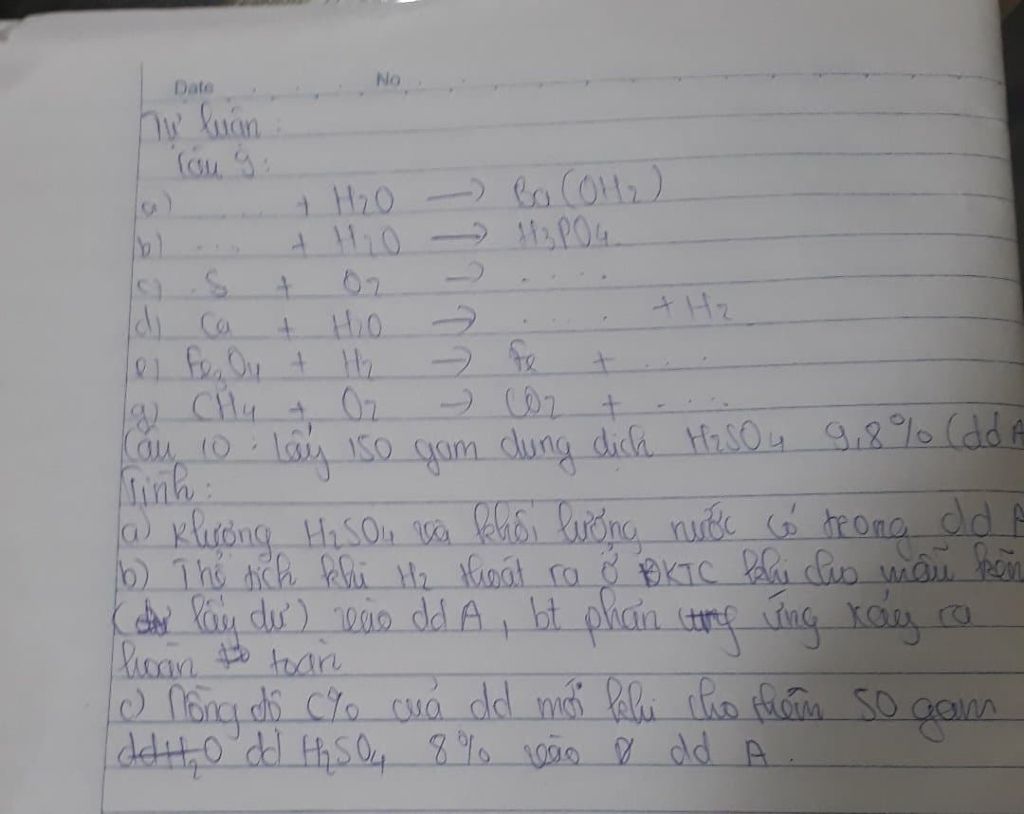 Date No
Tự luận :
Câu 9:
a) ..... + H2O → Ba(OH2)
b) .... + H2O → H3PO4
c) S + O2 → .....
d) Ca + H2O → ..... + H2
e) Fe3O4 + H2 → Fe + ....
g) CH4 + O2 → CO2 + .....
Câu 10 : Lấy 150 gam dung dịch H2SO4 9,8% (dd A
Tính :
a) Klượng H2SO4 và khối lượng nước có trong dd A
b) Thể tích khí H2 thoát ra ở ĐKTC khi cho mẫu
(lấy dư) vào dd A, bt phản ứng xảy ra
hoàn toàn
c) Nồng độ C% của dd mới khi cho thêm 50 gam
ddH2O dd H2SO4 8% vào dd A.